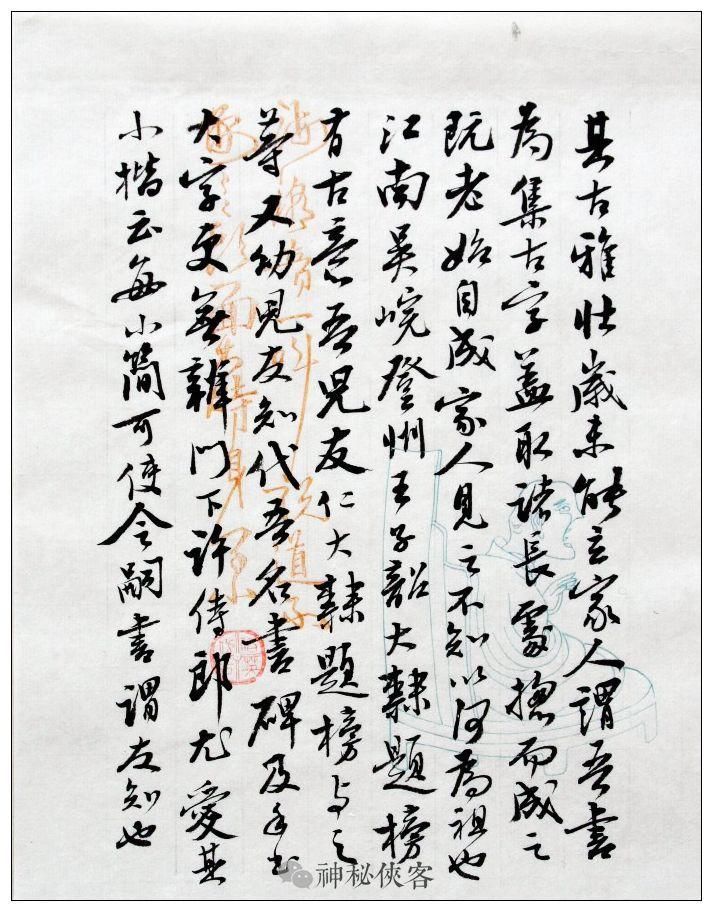 其古雅壮歲未能立家人謂吾書
為集古字盖取諸長處揔而成之
既老始自成家人見之不知以何為祖也
江南吴皖登州王子韶大隸題榜
有古意吾兒友仁大隸題榜与之
等又幼兒友知代吾名書碑及手書
大字更無辨門下許侍郎尤愛其
小楷云每小簡可使令嗣書謂友知也
神秘俠客